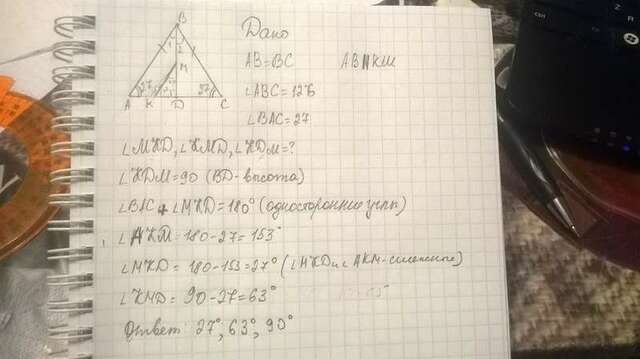 B
1 2
M
27 27
A K D C
Дано
AB=BC AB || KM
∠ABC=126
∠BAC=27
∠MKD, ∠KMD, ∠KDM=?
∠KDM=90 (BD-высота)
∠BAC + ∠MKD=180° (односторонние углы)
∠AKM=180-27=153°
∠MKD=180-153=27° (∠MKD и ∠AKM-смежные)
∠KMD=90-27=63°
Ответ: 27°, 63°, 90°